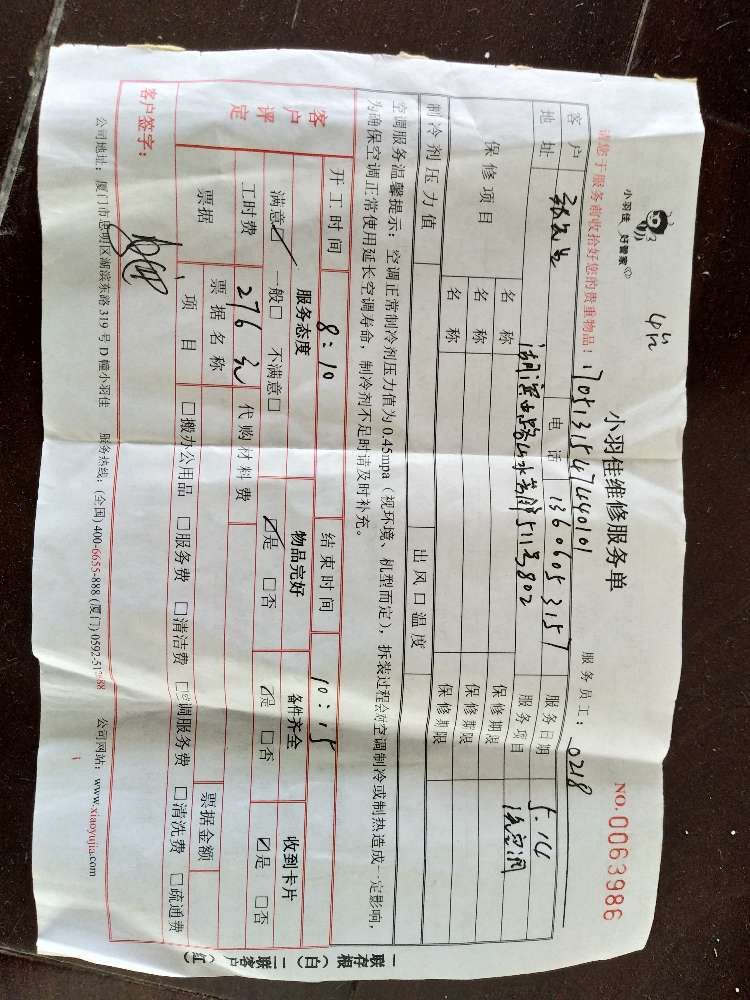 4台
小羽佳 好管家
小羽佳维修服务单
NO.0063986
请您于服务前收拾好您的贵重物品!
17051315474440101
服务员工: 0218
客户
电话 13606053157
服务日期 5.14
地址
服务项目 洗空调
保修项目
名称
保修期限
名称
保修期限
名称
保修期限
制冷剂压力值
出风口温度
空调服务温馨提示: 空调正常制冷剂压力值为0.45mpa (视环境、机型而定), 拆装过程会对空调制冷或制热造成一定影响,
为确保空调正常使用延长空调寿命, 制冷剂不足时请及时补充。
客户评定
开工时间 8:10
结束时间 10:15
服务态度
物品完好
备件齐全
收到卡片
满意☑ 一般□ 不满意□
☑是 □否
☑是 □否
☑是 □否
工时费 276元
代购材料费
票据
票据名称
票据金额
项目
□搬办公用品 □服务费 □清洁费 □空调服务费 □清洗费 □疏通费
客户签字:
公司地址: 厦门市思明区湖滨东路 319 号 D 幢小羽佳
服务热线: (全国) 400-6655-888 (厦门) 0592-51
88
公司网站: www.xiaoyujia.com
一联存根(白) 二联客户(红)